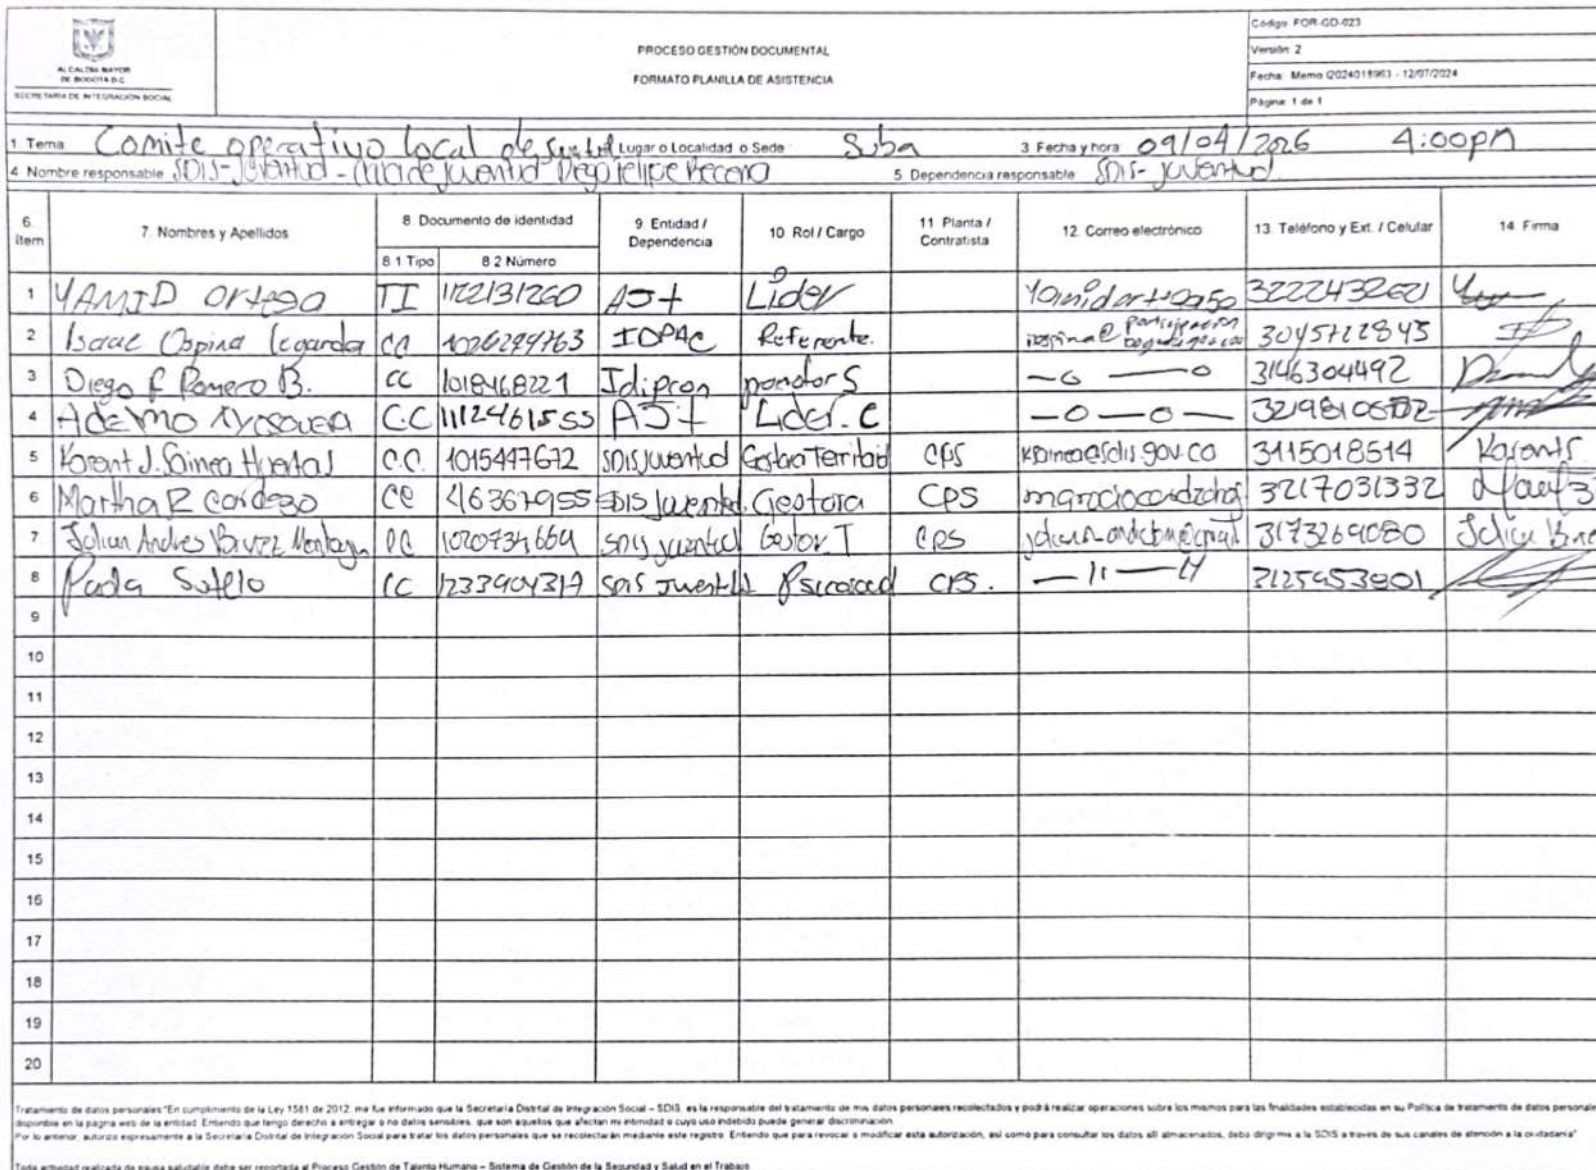 ALCALDÍA MAYOR
DE BOGOTÁ D.C.
SECRETARÍA DE INTEGRACIÓN SOCIAL
PROCESO GESTIÓN DOCUMENTAL
FORMATO PLANILLA DE ASISTENCIA
Código: FOR-GD-023
Versión: 2
Fecha: Memo I2024018963 - 12/07/2024
Página: 1 de 1
1. Tema: Comite operativo local de Lugar o Localidad o Sede Suba 3 Fecha y hora 09/04/2026 4:00pm
4. Nombre responsable SDIS-Juventud - de juventud Diego felipe 5. Dependencia responsable SDIS-juventud
6. Ítem 7. Nombres y Apellidos 8. Documento de identidad 9. Entidad / Dependencia 10. Rol / Cargo 11. Planta / Contratista 12. Correo electrónico 13. Teléfono y Ext. / Celular 14. Firma
8.1 Tipo 8.2 Número
1 YAMID Ortega TI 1122131260 AJ+ Lider 3222432621
2 Isaac Ospina Legarda CC IDPAC Referente. 3045722845
3 Diego F Romero B. CC 1018468221 Idipron promotor S —o —o 3146304492
4 C.C 1112461555 AJ+ Lider. C —o—o—
5 Karent J. Huertas C.C. 1015447672 SDIS Juventud Gestora Territorial CPS 3115018514 Karent S
6 Martha R CC SDIS Juventud. Gestora CPS 3217031332
7 Julian Andres CC 1020734664 SDIS juventud Gestor T CPS 3173269080 Julian
8 Paola Sotelo CC SDIS Juventud CPS. —11—11 3125953801
9
10
11
12
13
14
15
16
17
18
19
20
Tratamiento de datos personales "En cumplimiento de la Ley 1581 de 2012, me fue informado que la Secretaría Distrital de Integración Social – SDIS, es la responsable del tratamiento de mis datos personales recolectados y podrá realizar operaciones sobre los mismos para las finalidades establecidas en su Política de tratamiento de datos personale
disponible en la página web de la entidad. Entiendo que tengo derecho a entregar o no datos sensibles, que son aquellos que afectan mi intimidad o cuyo uso indebido puede generar discriminación.
Por lo anterior, autorizo expresamente a la Secretaría Distrital de Integración Social para tratar los datos personales que se recolectarán mediante este registro. Entiendo que para revocar o modificar esta autorización, así como para consultar los datos allí almacenados, debo dirigirme a la SDIS a través de sus canales de atención a la ciudadanía"
Toda actividad realizada de pausa saludable debe ser reportada al Proceso Gestión de Talento Humano – Sistema de Gestión de la Seguridad y Salud en el Trabajo